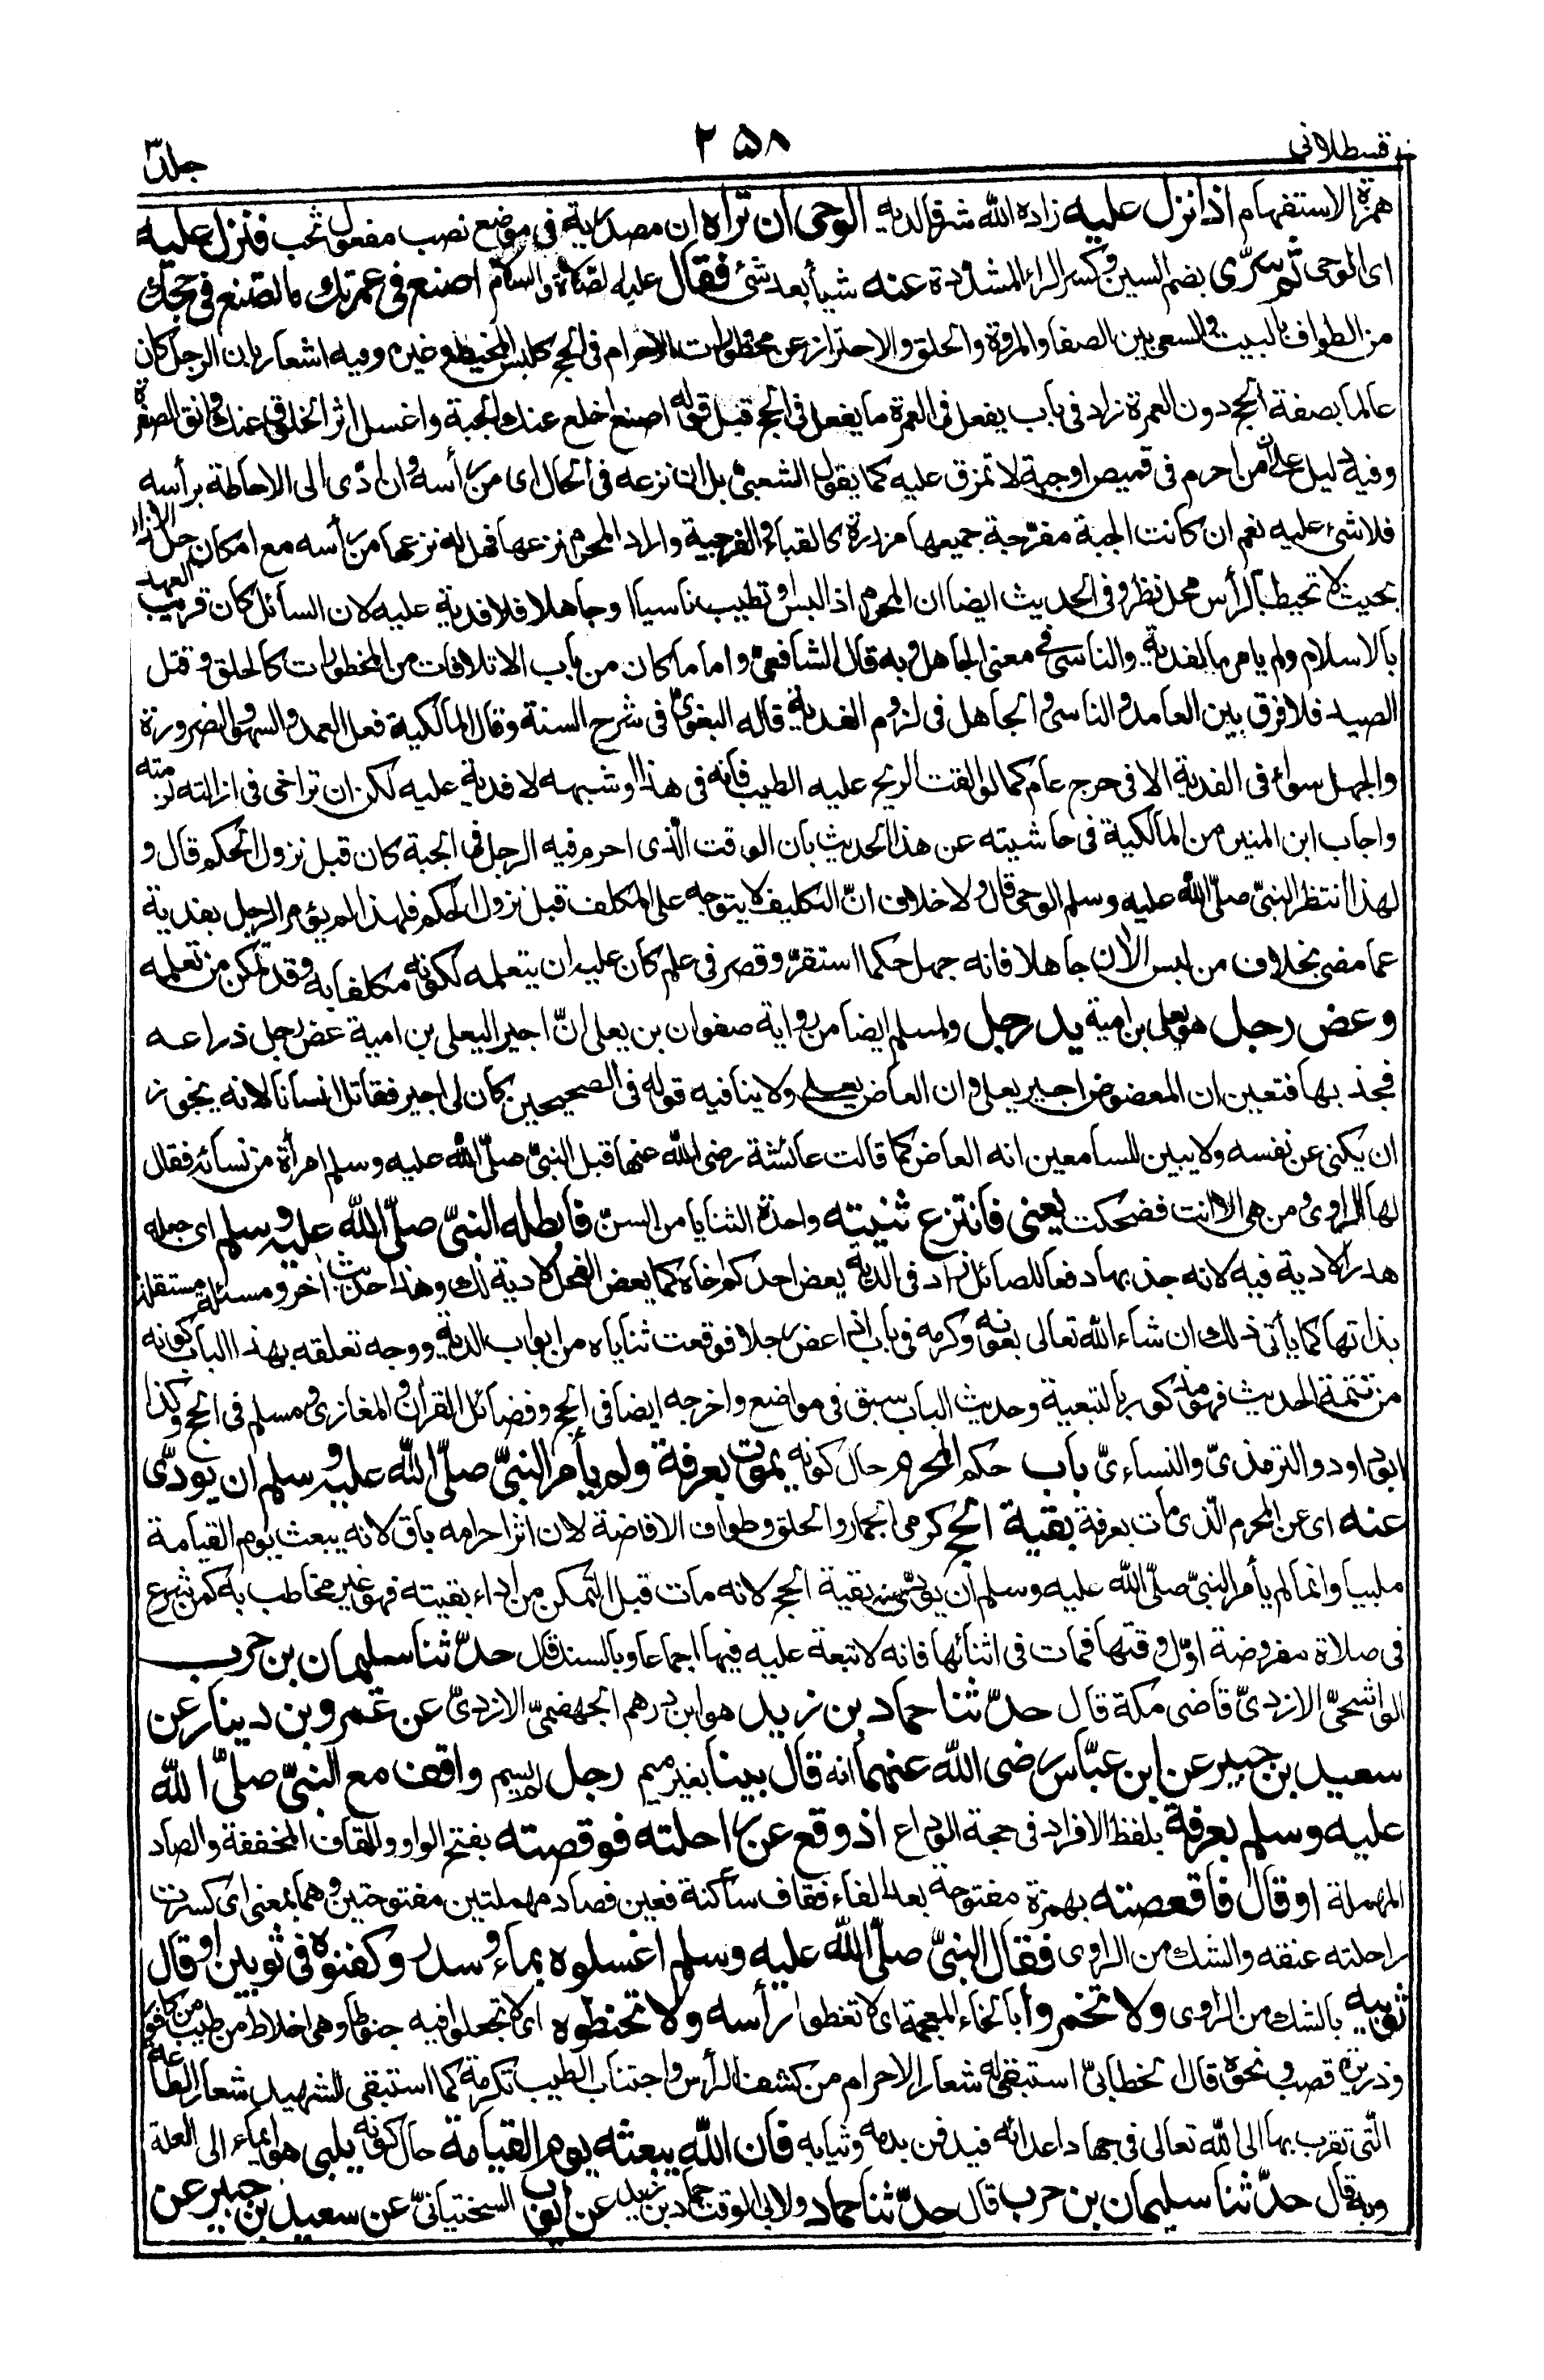 قسطلانى ٢٥٨ جلد٣
همزة الاستفهام اذا نزل عليه زاده الله شرفا لديه الوحى ان تراه ان مصدرية فى موضع نصب مفعول تحب فنزل عليه
اى الوحى ثم سرّى بضم السين وكسر الراء المشددة عنه شيأ بعد شئ فقال عليه الصلاة والسلام اصنع فى عمرتك ما تصنع فى حجك
من الطواف بالبيت والسعى بين الصفا والمروة والحلق والاحتراز عن محظورات الاحرام فى الحج كلبس المخيط وغيره وفيه اشعار بان الرجل كان
عالما بصفة الحج دون العمرة زاد فى باب يفعل فى العمرة ما يفعل فى الحج قبل قوله اصنع اخلع عنك الجبة واغسل اثر الخلوق عنك وانق الصفرة
وفيه دليل على ان من احرم فى قميص او جبة لا تمزق عليه كما يقول الشعبى بل ان نزعه فى الحال اى من رأسه وان ادّى الى الاحاطة برأسه
فلا شئ عليه نعم ان كانت الجبة مفرّجة جميعها مزررة كالقباء والفرجية واراد المحرم نزعها فهل له نزعها من رأسه مع امكان حل الازرار
بحيث لا تحيط بالرأس محل نظر وفى الحديث ايضا ان المحرم اذا لبس او تطيب ناسيا او جاهلا فلا فدية عليه لان السائل كان قريب العهد
بالاسلام ولم يامره بالفدية والناسى فى معنى الجاهل وبه قال الشافعى واما ما كان من باب الاتلافات من المحظورات كالحلق وقتل
الصيد فلا فرق بين العامد والناسى والجاهل فى لزوم الفدية قاله البغوى فى شرح السنة وقال المالكية فعل العمد والسهو والضرورة
والجهل سواء فى الفدية الا فى حرج عام كما لو القت الريح عليه الطيب فانه فى هذا وشبهه لا فدية عليه لكن ان تراخى فى ازالته لزمته
واجاب ابن المنير من المالكية فى حاشيته عن هذا الحديث بان الوقت الّذى احرم فيه الرجل فى الجبة كان قبل نزول الحكم قال و
لهذا انتظر النبىّ صلّى الله عليه وسلم الوحى قال ولا خلاف انّ التكليف لا يتوجه على المكلف قبل نزول الحكم فلهذا لم يؤمر الرجل بفدية
عما مضى بخلاف من لبس الآن جاهلا فانه جهل حكما استقرّ وقصر فى علم كان عليه ان يتعلمه لكونه مكلفا به وقد تمكن من تعلمه
وعض رجل هو يعلى بن امية يد رجل ولمسلم ايضا من رواية صفوان بن يعلى انّ اجيرا ليعلى بن امية عض رجل ذراعه
فجذبها فتعين ان المعضوض اجير يعلى وان العاض يعلى ولا ينافيه قوله فى الصحيحين كان لى اجير فقاتل انسانا لانه يجوز
ان يكنى عن نفسه ولا يبين للسامعين انه العاض كما قالت عائشة رضى الله عنها قبل النبىّ صلّى الله عليه وسلم امرأة من نسائه فقال
لها الراوى ومن هى الا انت فضحكت يعنى فانتزع ثنيته واحدة الثنايا من السنّ فابطله النبىّ صلّى الله عليه وسلم اى جعله
هدرا لا دية فيه لانه جذبها دفعا للصائل زاد فى الدية يعض احدكم اخاه كما يعض الفحل لا دية لك وهذا حديث اخر ومسئلة مستقلة
بذاتها كما يأتى ذلك ان شاء الله تعالى بعونه وكرمه فى باب اذا عض رجلا فوقعت ثناياه من ابواب الدية ووجه تعلقه بهذا الباب كونه
من تتمة الحديث فهو مذكور بالتبعية وحديث الباب سبق فى مواضع واخرجه ايضا فى الحج وفضائل القران والمغازى ومسلم فى الحج وكذا
ابو داود والترمذىّ والنساءىّ باب حكم المحرم حال كونه يموت بعرفة ولم يأمر النبىّ صلّى الله عليه وسلم ان يودّى
عنه اى عن المحرم الّذى مات بعرفة بقية الحج كرمى الجمار والحلق وطواف الافاضة لان اثر احرامه باق لانه يبعث يوم القيامة
ملبيا وانما لم يأمر النبىّ صلّى الله عليه وسلم ان يودّى عنه بقية الحج لانه مات قبل التمكن من اداء بقيته فهو غير مخاطب به كمن شرع
فى صلاة مفروضة اوّل وقتها فمات فى اثنائها فانه لا تبعة عليه فيها اجماعا وبالسند قال حدّثنا سليمان بن حرب
الواشحىّ الازدىّ قاضى مكة قال حدّثنا حماد بن زيد هو ابن درهم الجهضمىّ الازدىّ عن عمرو بن دينار عن
سعيد بن جبير عن ابن عبّاس رضى الله عنهما انه قال بينا بغير ميم رجل لم يسم واقف مع النبىّ صلّى الله
عليه وسلم بعرفة بلفظ الافراد فى حجة الوداع اذ وقع عن راحلته فوقصته بفتح الواو والقاف المخففة والصاد
المهملة او قال فاقعصته بهمزة مفتوحة بعد الفاء فقاف ساكنة فعين فصاد مهملتين مفتوحتين وهما بمعنى اى كسرت
راحلته عنقه والشك من الراوى فقال النبىّ صلّى الله عليه وسلم اغسلوه بماء وسدر وكفنوه فى ثوبين او قال
ثوبيه بالشك من الراوى ولا تخمروا بالخاء المعجمة اى لا تغطوا رأسه ولا تحنطوه اى لا تجعلوا فيه حنوطا وهى اخلاط من طيب من كافور
وذريرة قصب ونحوه قال الخطابىّ استبقى له شعار الاحرام من كشف الرأس واجتناب الطيب تكرمة كما استبقى للشهيد شعار الطاعة
الّتى تقرب بها الى الله تعالى فى جهاد اعدائه فيدفن بدمه وثيابه فان الله يبعثه يوم القيامة حال كونه يلبى هو ايماء الى العلة
وبه قال حدّثنا سليمان بن حرب قال حدّثنا حماد ولابى الوقت حماد بن زيد عن ايوب السختيانىّ عن سعيد بن جبير عن